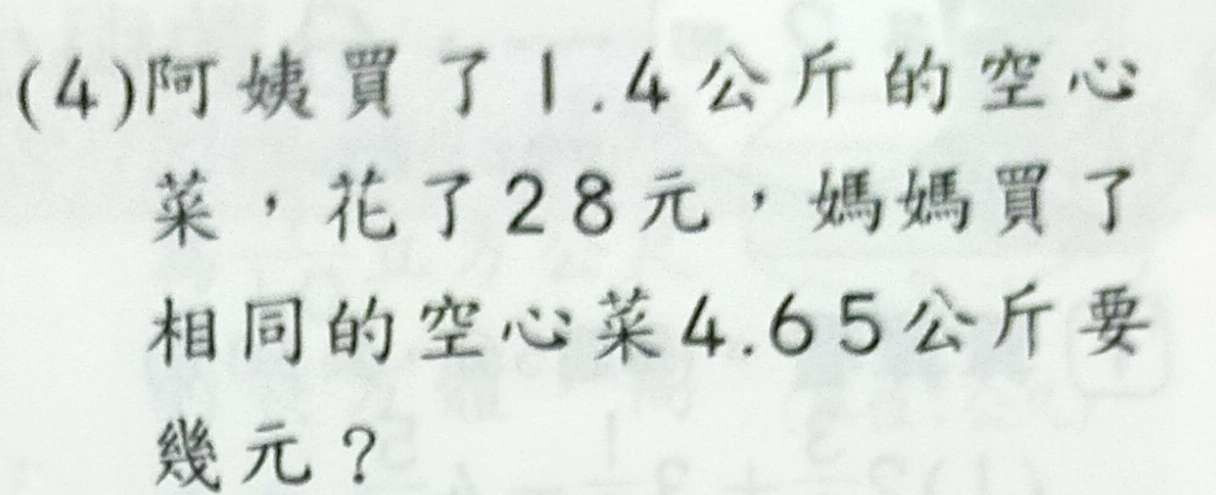 (4)阿姨買了1.4公斤的空心
菜，花了28元，媽媽買了
相同的空心菜4.65公斤要
幾元？